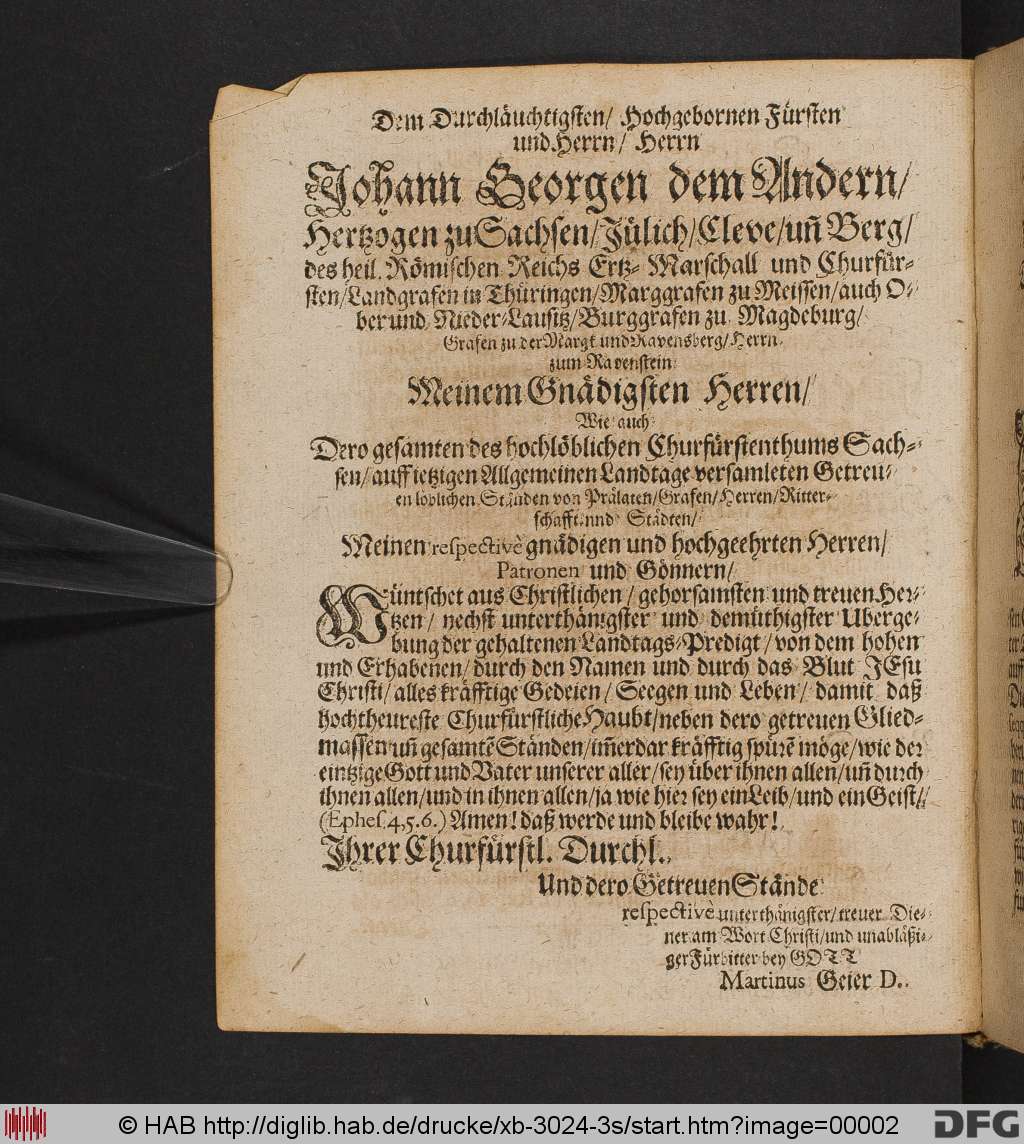 Dem Durchläuchtigsten/ Hochgebornen Fürsten
und Herrn/ Herrn
Johann Georgen dem Andern/
Hertzogen zu Sachsen/Jülich/Cleve/uñ Berg/
des heil. Römischen Reichs Ertz- Marschall und Churfür-
sten/Landgrafen in Thüringen/Marggrafen zu Meissen/auch O-
ber und Nieder-Lausitz/Burggrafen zu Magdeburg/
Grafen zu der Margk und Ravensberg/Herrn
zum Ravenstein
Meinem Gnädigsten Herren/
Wie auch
Dero gesamten des hochlöblichen Churfürstenthums Sach-
sen/auff ietzigen Allgemeinen Landtage versamleten Getreu-
en löblichen Ständen von Prälaten/Grafen/Herren/Ritter-
schafft und Städten/
Meinen respectivè gnädigen und hochgeehrten Herren/
Patronen und Gönnern/
Wüntschet aus Christlichen/gehorsamsten und treuen Her-
tzen/ nechst unterthänigster und demüthigster Uberge-
bung der gehaltenen Landtags-Predigt/von dem hohen
und Erhabenen/durch den Namen und durch das Blut JEsu
Christi/alles kräfftige Gedeien/Seegen und Leben/ damit daß
hochtheureste Churfürstliche Haubt/neben dero getreuen Glied-
massen uñ gesamtē Ständen/im̃erdar kräfftig spürē möge/wie der
eintzige Gott und Vater unserer aller/sey über ihnen allen/uñ durch
ihnen allen/und in ihnen allen/ja wie hier sey ein Leib/und ein Geist/
(Ephes. 4,5.6.) Amen! daß werde und bleibe wahr!
Ihrer Churfürstl. Durchl.
Und dero Getreuen Stände
respectivè unterthänigster/treuer Die-
ner am Wort Christi/und unabläßi-
ger Fürbitter bey GOTT
Martinus Geier D.
© HAB http://diglib.hab.de/drucke/xb-3024-3s/start.htm?image=00002
DFG